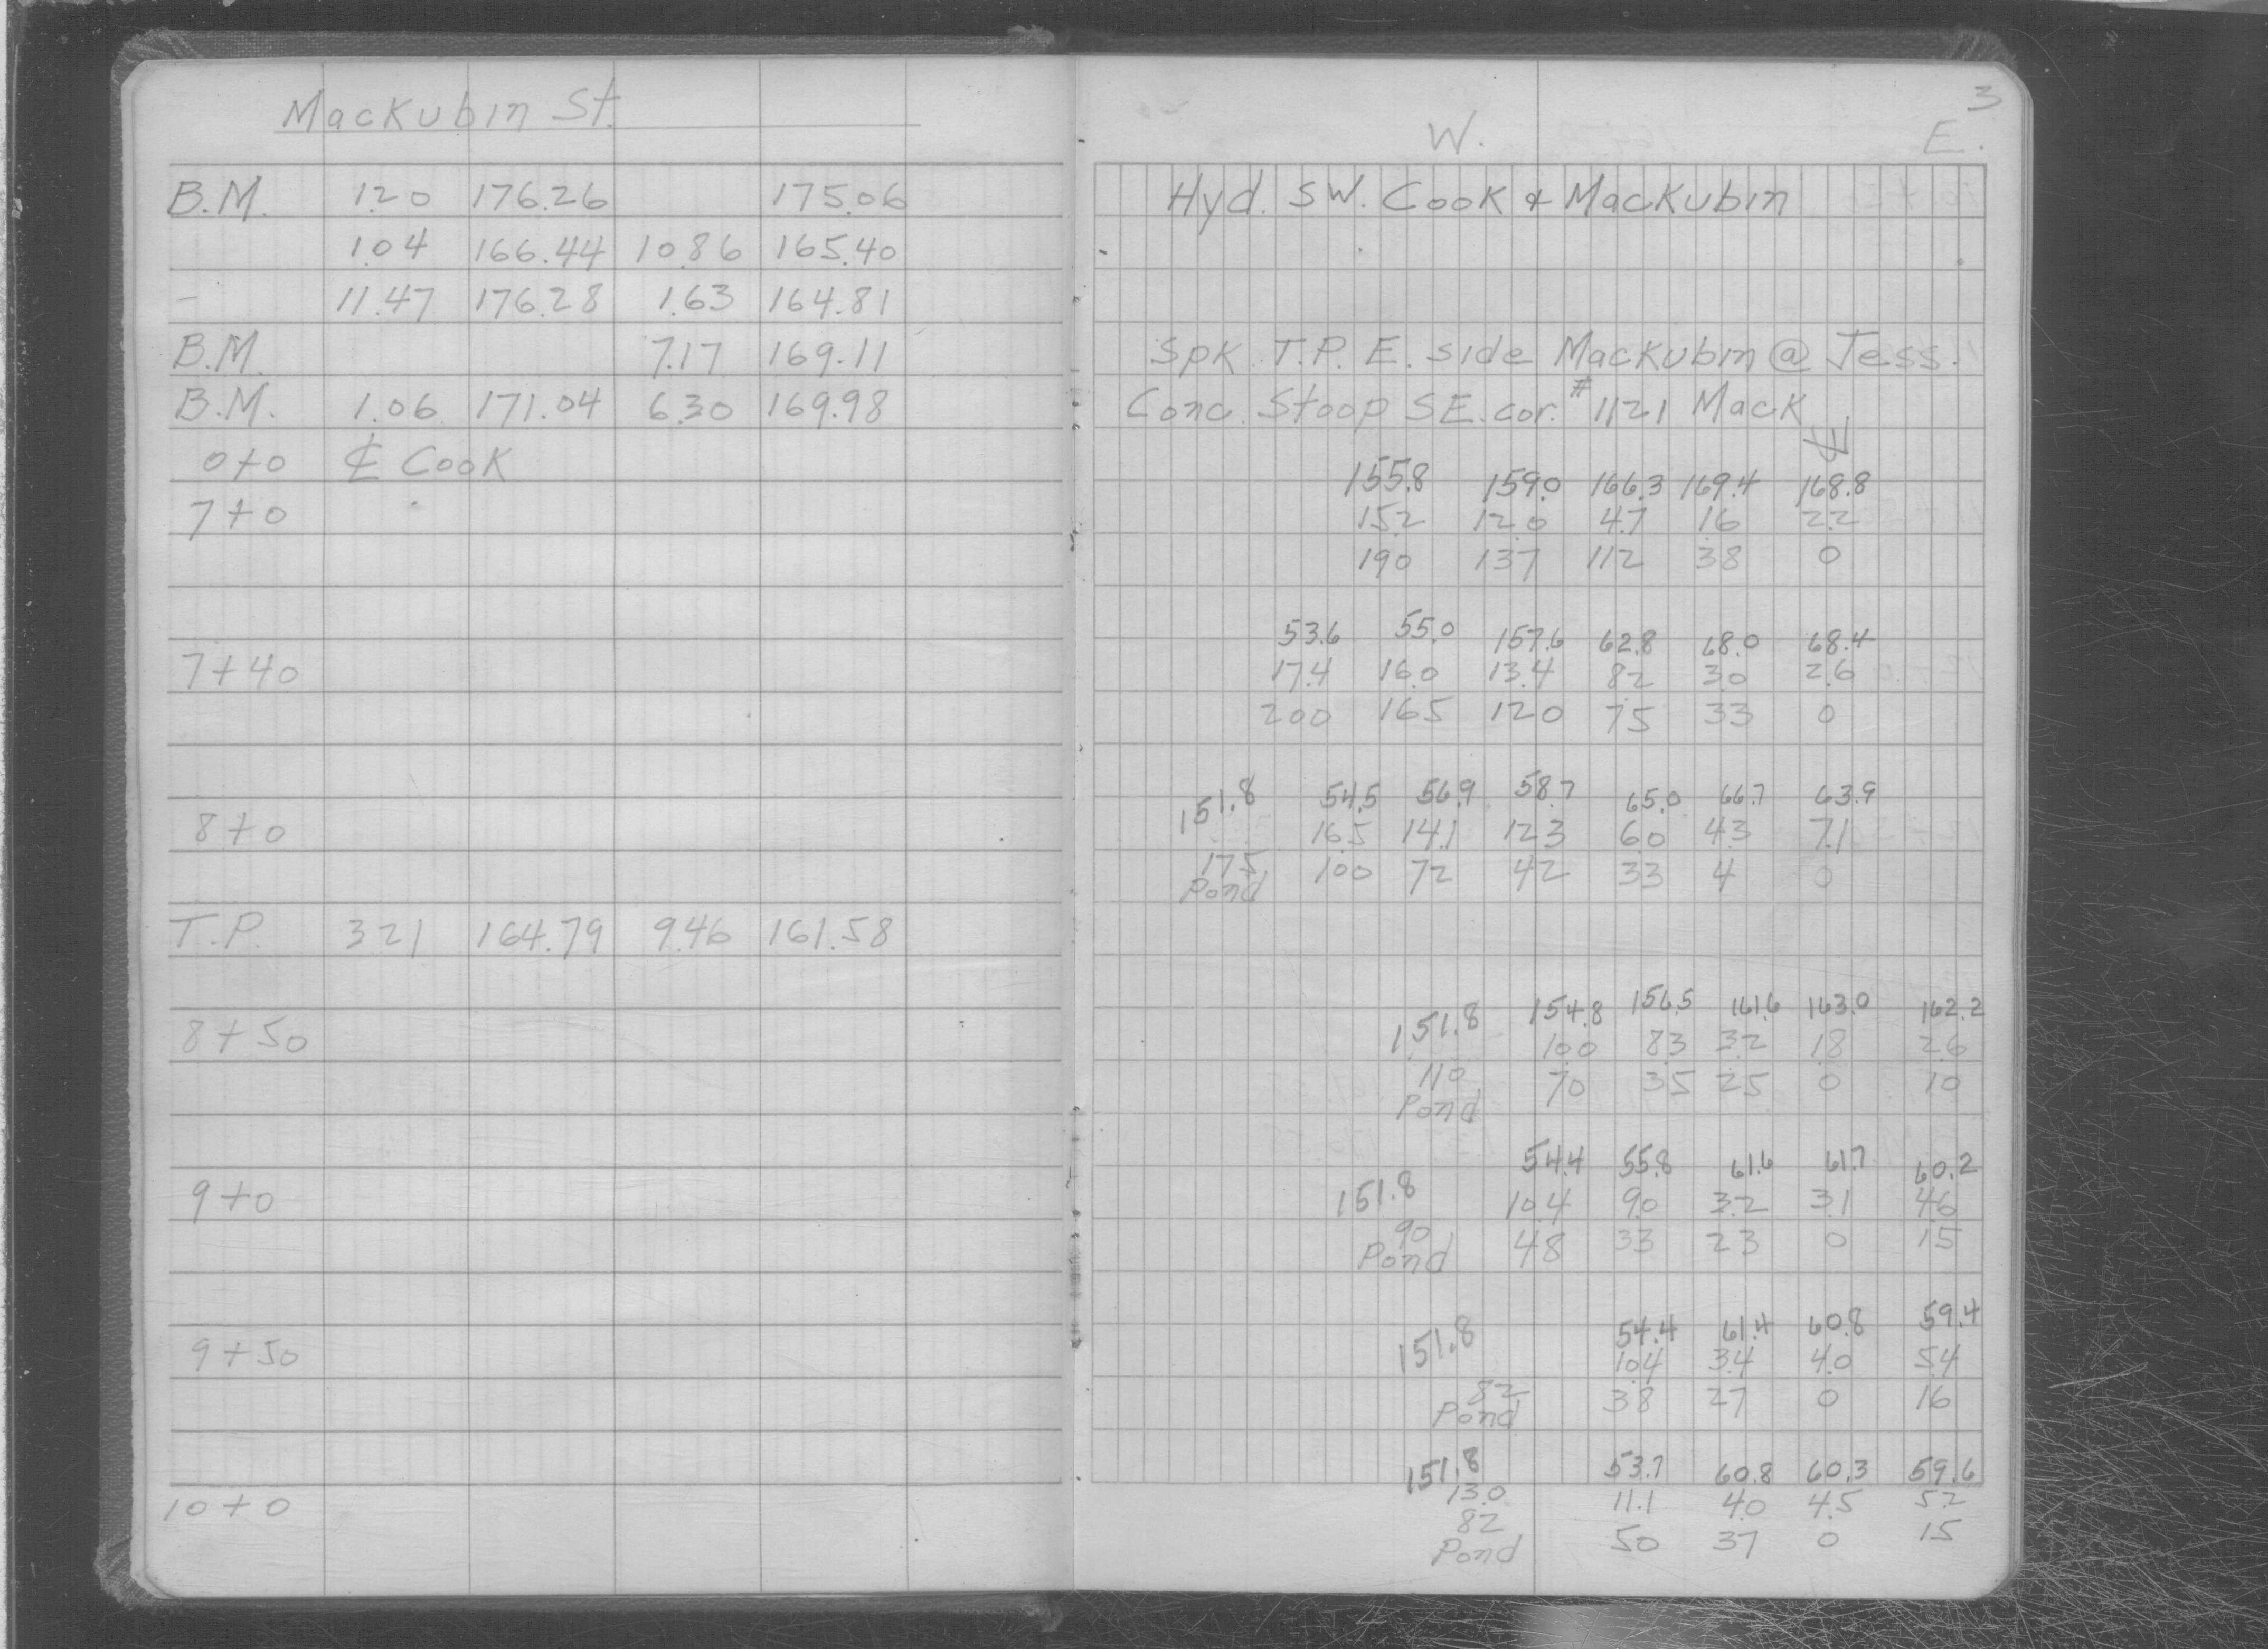 Mackubin St.
B.M. 1.20 176.26 175.06
1.04 166.44 10.86 165.40
- 11.47 176.28 1.63 164.81
B.M. 7.17 169.11
B.M. 1.06 171.04 6.30 169.98
0+0 ℄ Cook
7+0
7+40
8+0
T.P. 3.21 164.79 9.46 161.58
8+50
9+0
9+50
10+0
3
W. E.
Hyd. SW. Cook & Mackubin
Spk. T.P. E. side Mackubin @ Jess.
Conc. Stoop SE. cor. #1121 Mack
℄
155.8 159.0 166.3 169.4 168.8
15.2 12.0 4.7 1.6 2.2
190 137 112 38 0
53.6 55.0 157.6 62.8 68.0 68.4
17.4 16.0 13.4 8.2 3.0 2.6
200 165 120 75 33 0
151.8 54.5 56.9 58.7 65.0 66.7 63.9
16.5 14.1 12.3 6.0 4.3 7.1
175 100 72 42 33 4 0
Pond
151.8 154.8 156.5 161.6 163.0 162.2
10.0 8.3 3.2 1.8 2.6
110 70 35 25 0 10
Pond
151.8 54.4 55.8 61.6 61.7 60.2
10.4 9.0 3.2 3.1 4.6
90 48 33 23 0 15
Pond
151.8 54.4 61.4 60.8 59.4
10.4 3.4 4.0 5.4
82 38 27 0 16
Pond
151.8 53.7 60.8 60.3 59.6
13.0 11.1 4.0 4.5 5.2
82 50 37 0 15
Pond